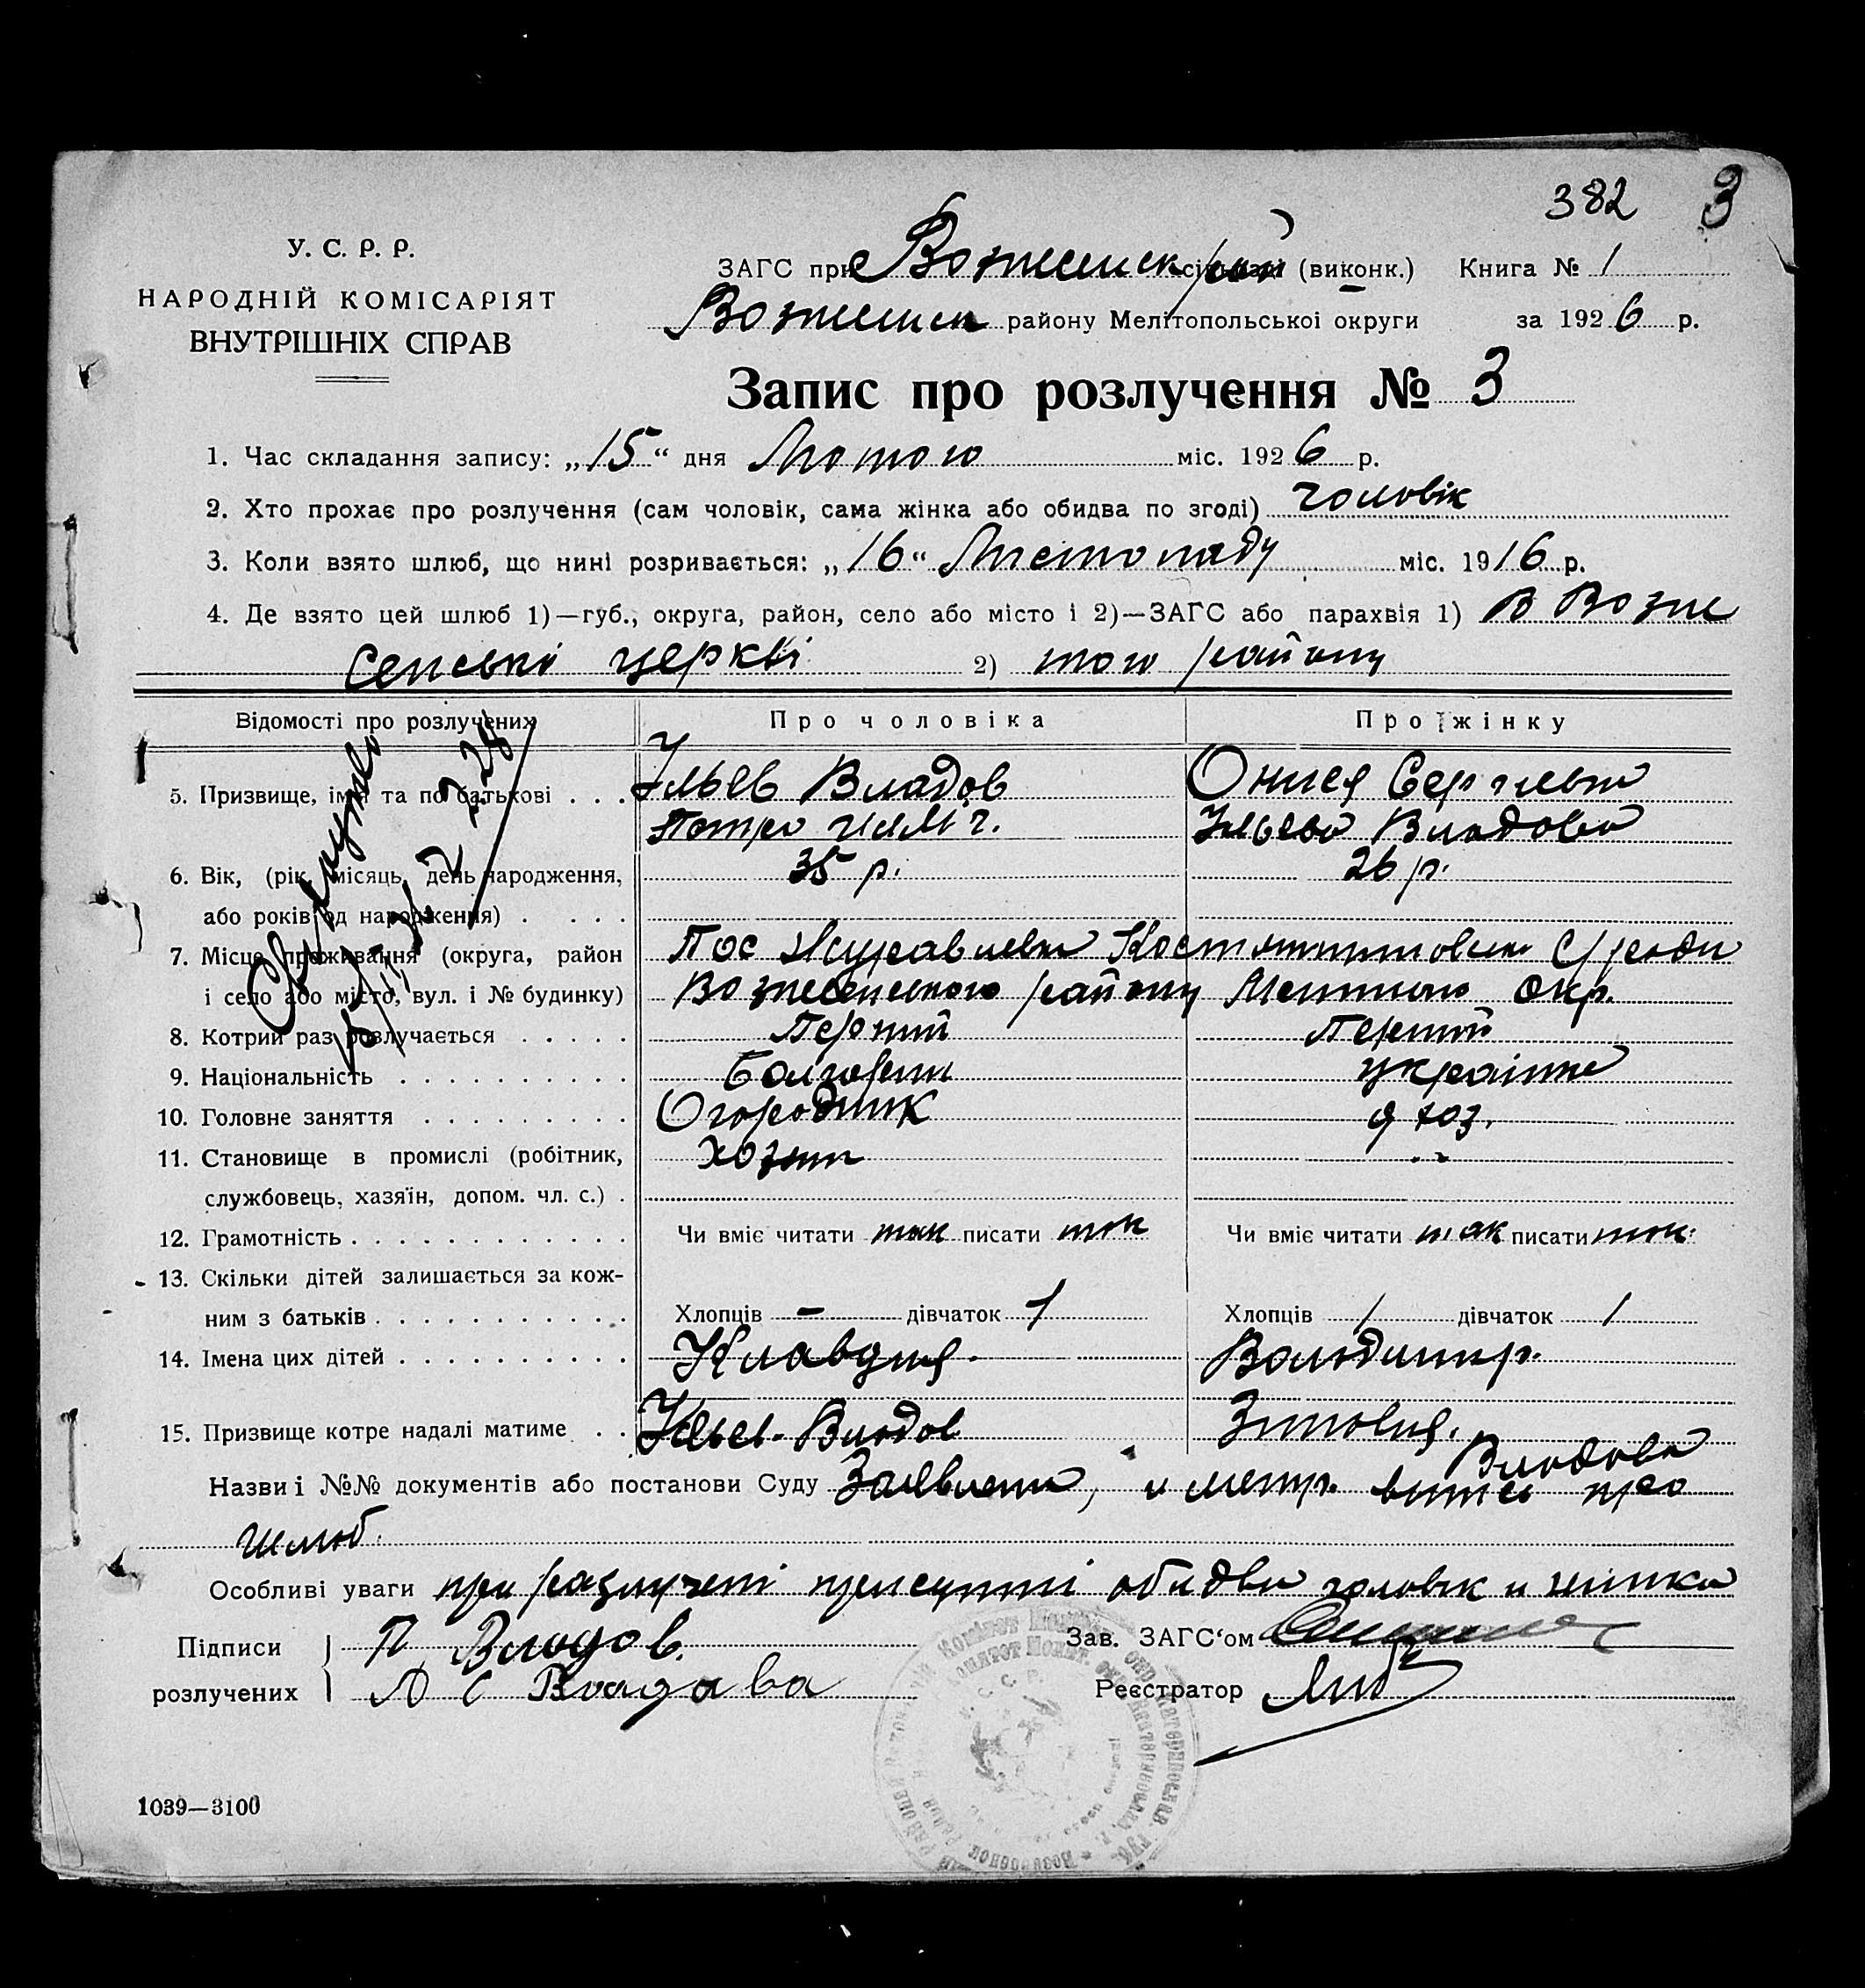 382 3
У. С. Р. Р.
НАРОДНІЙ КОМІСАРІЯТ
ВНУТРІШНІХ СПРАВ
ЗАГС при (виконк.) Книга № 1
району Мелітопольської округи за 1926 р.
Запис про розлучення № 3
1. Час складання запису: „15“ дня Лютого міс. 1926 р.
2. Хто прохає про розлучення (сам чоловік, сама жінка або обидва по згоді) чоловік
3. Коли взято шлюб, що нині розривається: „16“ Листопаду міс. 1916 р.
4. Де взято цей шлюб 1)—губ., округа, район, село або місто і 2)—ЗАГС або парахвія 1) В Возне
сенські церкві 2) того району
Відомості про розлучених Про чоловіка Про жінку
5. Призвище, імя та по батькові . . . Ільєв Владов
Петро Ілліч. Ільева Владова
6. Вік, (рік, місяць, день народження, 35 р. 26 р.
або років од народження) . . . . .
7. Місце проживання (округа, район Пос
і село або місто, вул. і № будинку) Вознесенського району Окр.
8. Котрий раз розлучається . . . . . Перший Перший
9. Національність . . . . . . . . . . Болгарин українка
10. Головне заняття . . . . . . . . . Огородник д хоз.
11. Становище в промислі (робітник, хозяин
службовець, хазяїн, допом. чл. с.) .
12. Грамотність . . . . . . . . . . . . Чи вміє читати так писати так Чи вміє читати так писати так.
13. Скільки дітей залишається за кож-
ним з батьків . . . . . . . . . . . Хлопців — дівчаток 1 Хлопців 1 дівчаток 1
14. Імена цих дітей . . . . . . . . . . Клавдия. Володимир.
15. Призвище котре надалі матиме . . Ільєв-Владов Зиновия.
Владова
Назви і №№ документів або постанови Суду и метр. витяг про
шлюб.
Особливі уваги при разлучені присутні обидва чоловік и жинка
Підписи П. Владов. Зав. ЗАГС‘ом
розлучених Владава Реєстратор
1039—3100